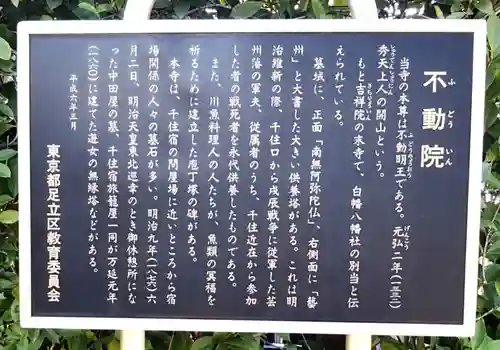 不動院
ふどういん
当寺の本尊は不動明王である。元弘二年(一三三二)
秀天上人の開山という。
もと吉祥院の末寺で、白幡八幡社の別当と伝
えられている。
墓域に、正面「南無阿弥陀仏」、右側面に、「藝
州」と大書した大きい供養塔がある。これは明
治維新の際、千住口から戊辰戦争に従軍した芸
州藩の軍夫、従属者のうち、千住近在から参加
した者の戦死者を永代供養したものである。
また、川魚料理人の人たちが、魚類の冥福を
祈るために建立した庖丁塚の碑がある。
本寺は、千住宿の問屋場に近いところから宿
場関係の人々の墓石が多い。明治九年(一八七六)六
月二日、明治天皇東北巡幸のとき御休憩所にな
った中田屋の墓、千住宿旅籠屋一同が万延元年
(一八六〇)に建てた遊女の無縁塔などがある。
平成六年三月
東京都足立区教育委員会